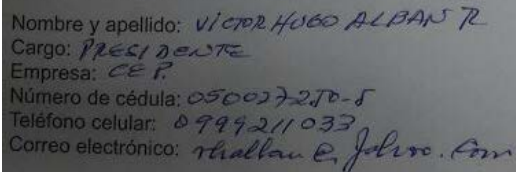 Nombre y apellido: VICTOR HUGO ALBAN R
Cargo: PRESIDENTE
Empresa: CEP.
Número de cédula: 050027250-5
Teléfono celular: 0999211033
Correo electrónico: